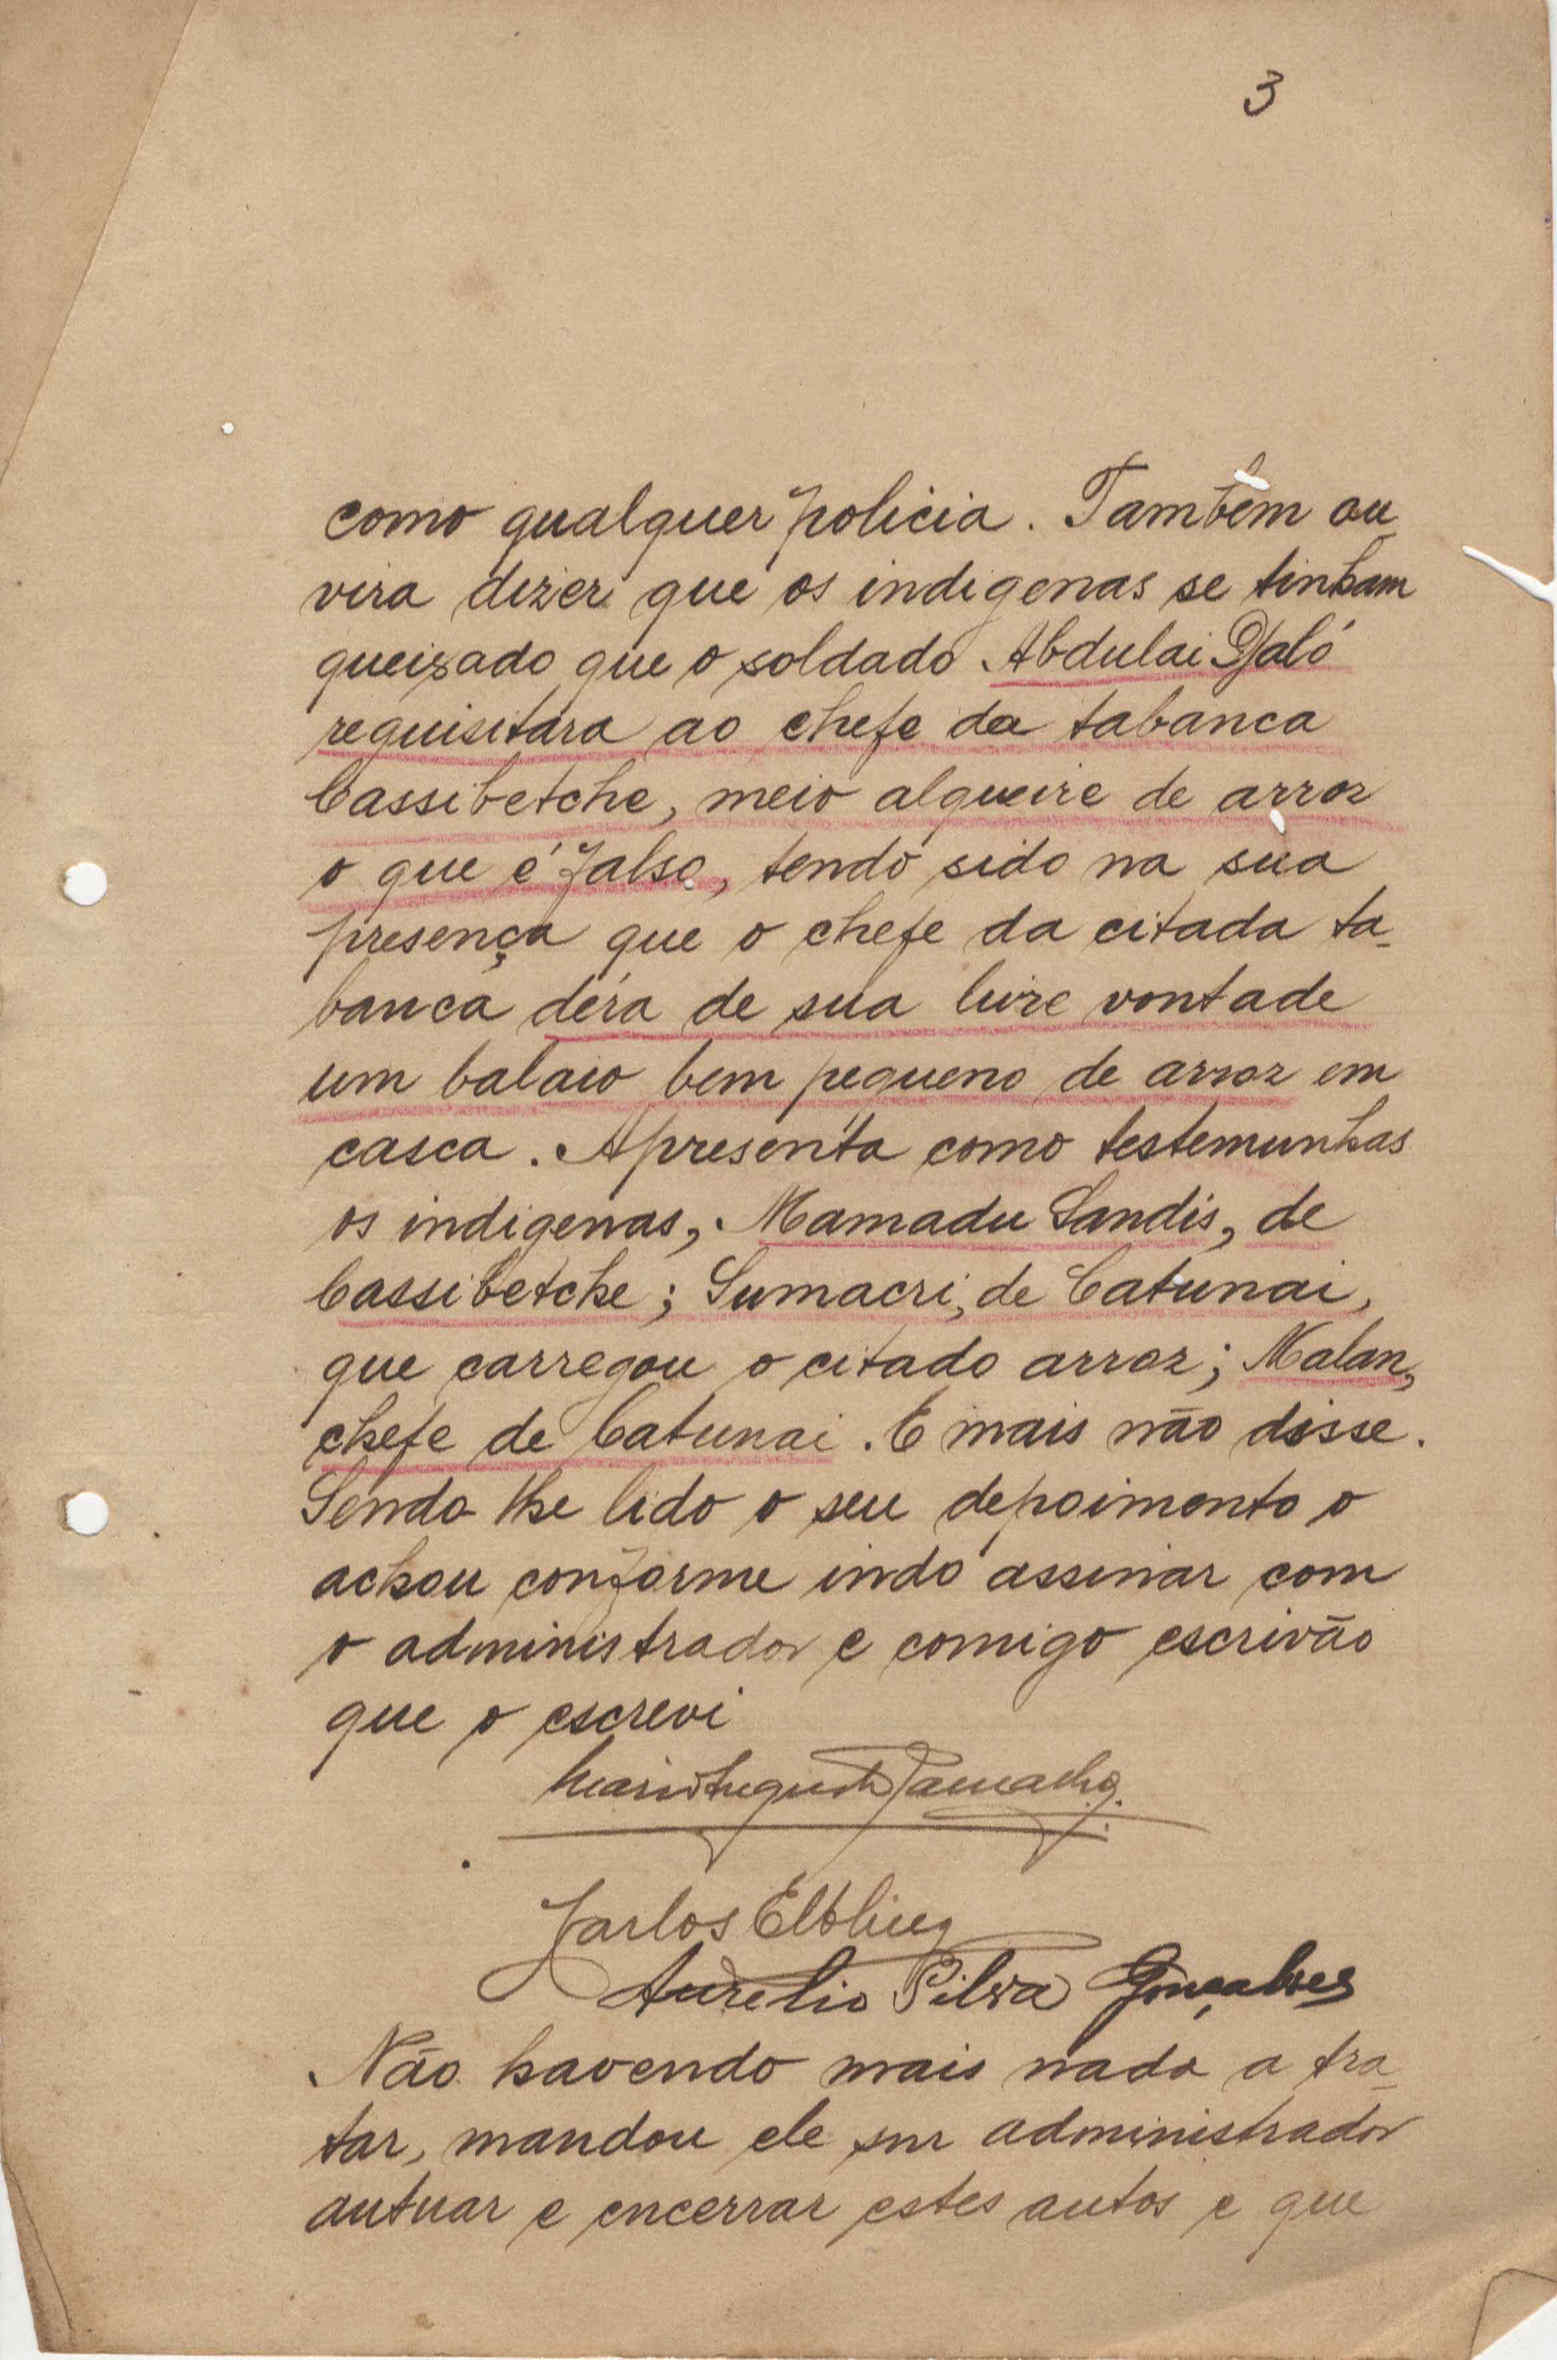 3
como qualquer policia. Também ou-
vira dizer que os indigenas se tinham
queixado que o soldado Abdulai Djaló
requisitára ao chefe da tabanca
Cassibetche, meio alqueire de arroz
o que é falso, tendo sido na sua
presença que o chefe da citada ta-
banca déra de sua livre vontade
um balaio bem pequeno de arroz em
casca. Apresenta como testemunhas
os indigenas, Mamadu Sandis, de
Cassibetche; Sumacri, de Catunai,
que carregou o citado arroz; Malan,
chefe de Catunai. E mais não disse.
Sendo lhe lido o seu depoimento o
achou conforme indo assinar com
o administrador e comigo escrivão
que o escrevi
Mario Augusto Camacho.
Carlos Elbling
Aurelio Silva Gonçalves
Não havendo mais nada a tra-
tar, mandou ele snr administrador
autuar e encerrar estes autos e que